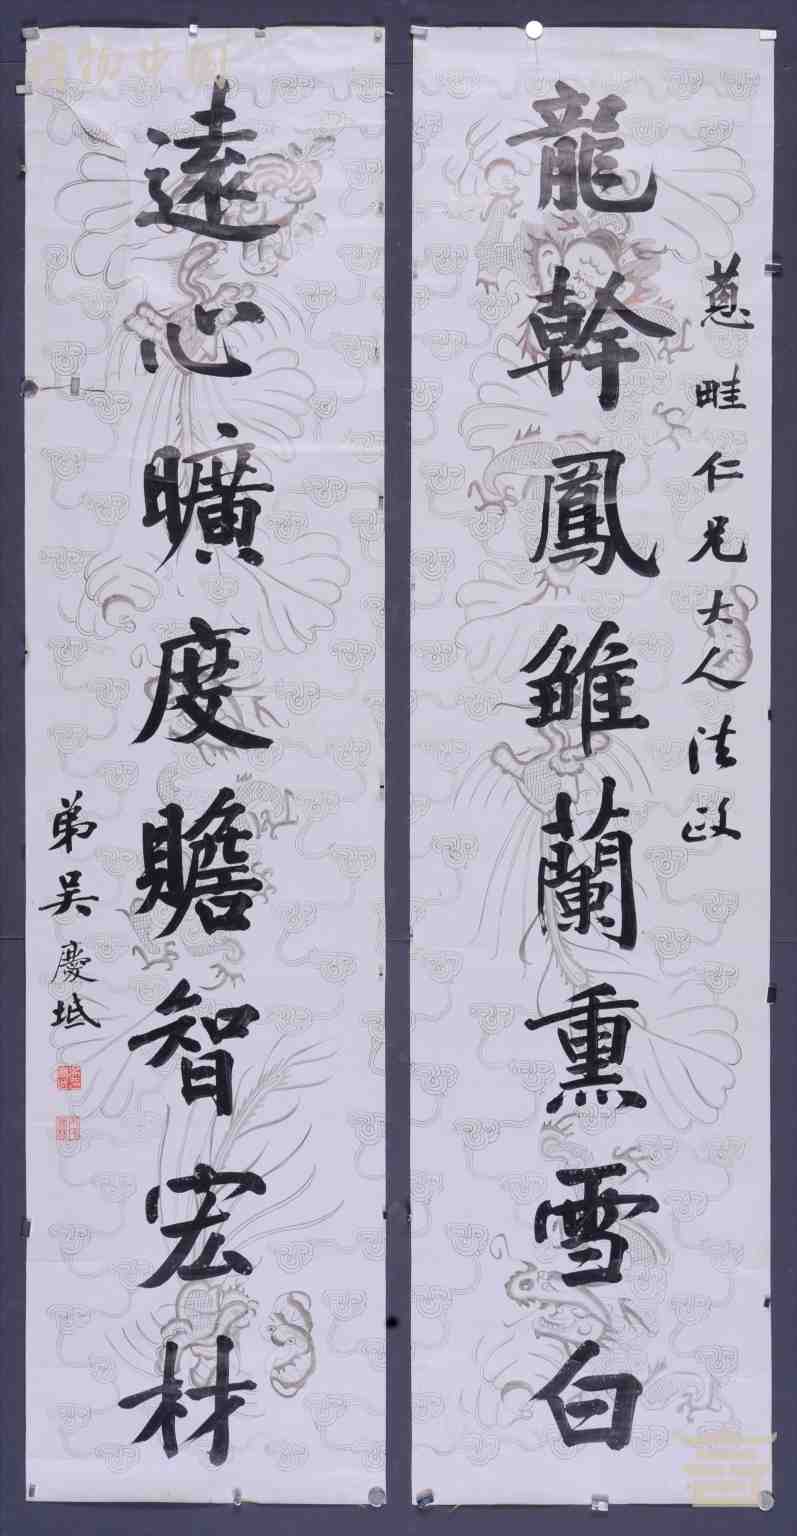 蔥畦仁兄大人法政
龍幹鳳雛蘭熏雪白
遠心曠度贍智宏材
弟吳慶坻
博物中国